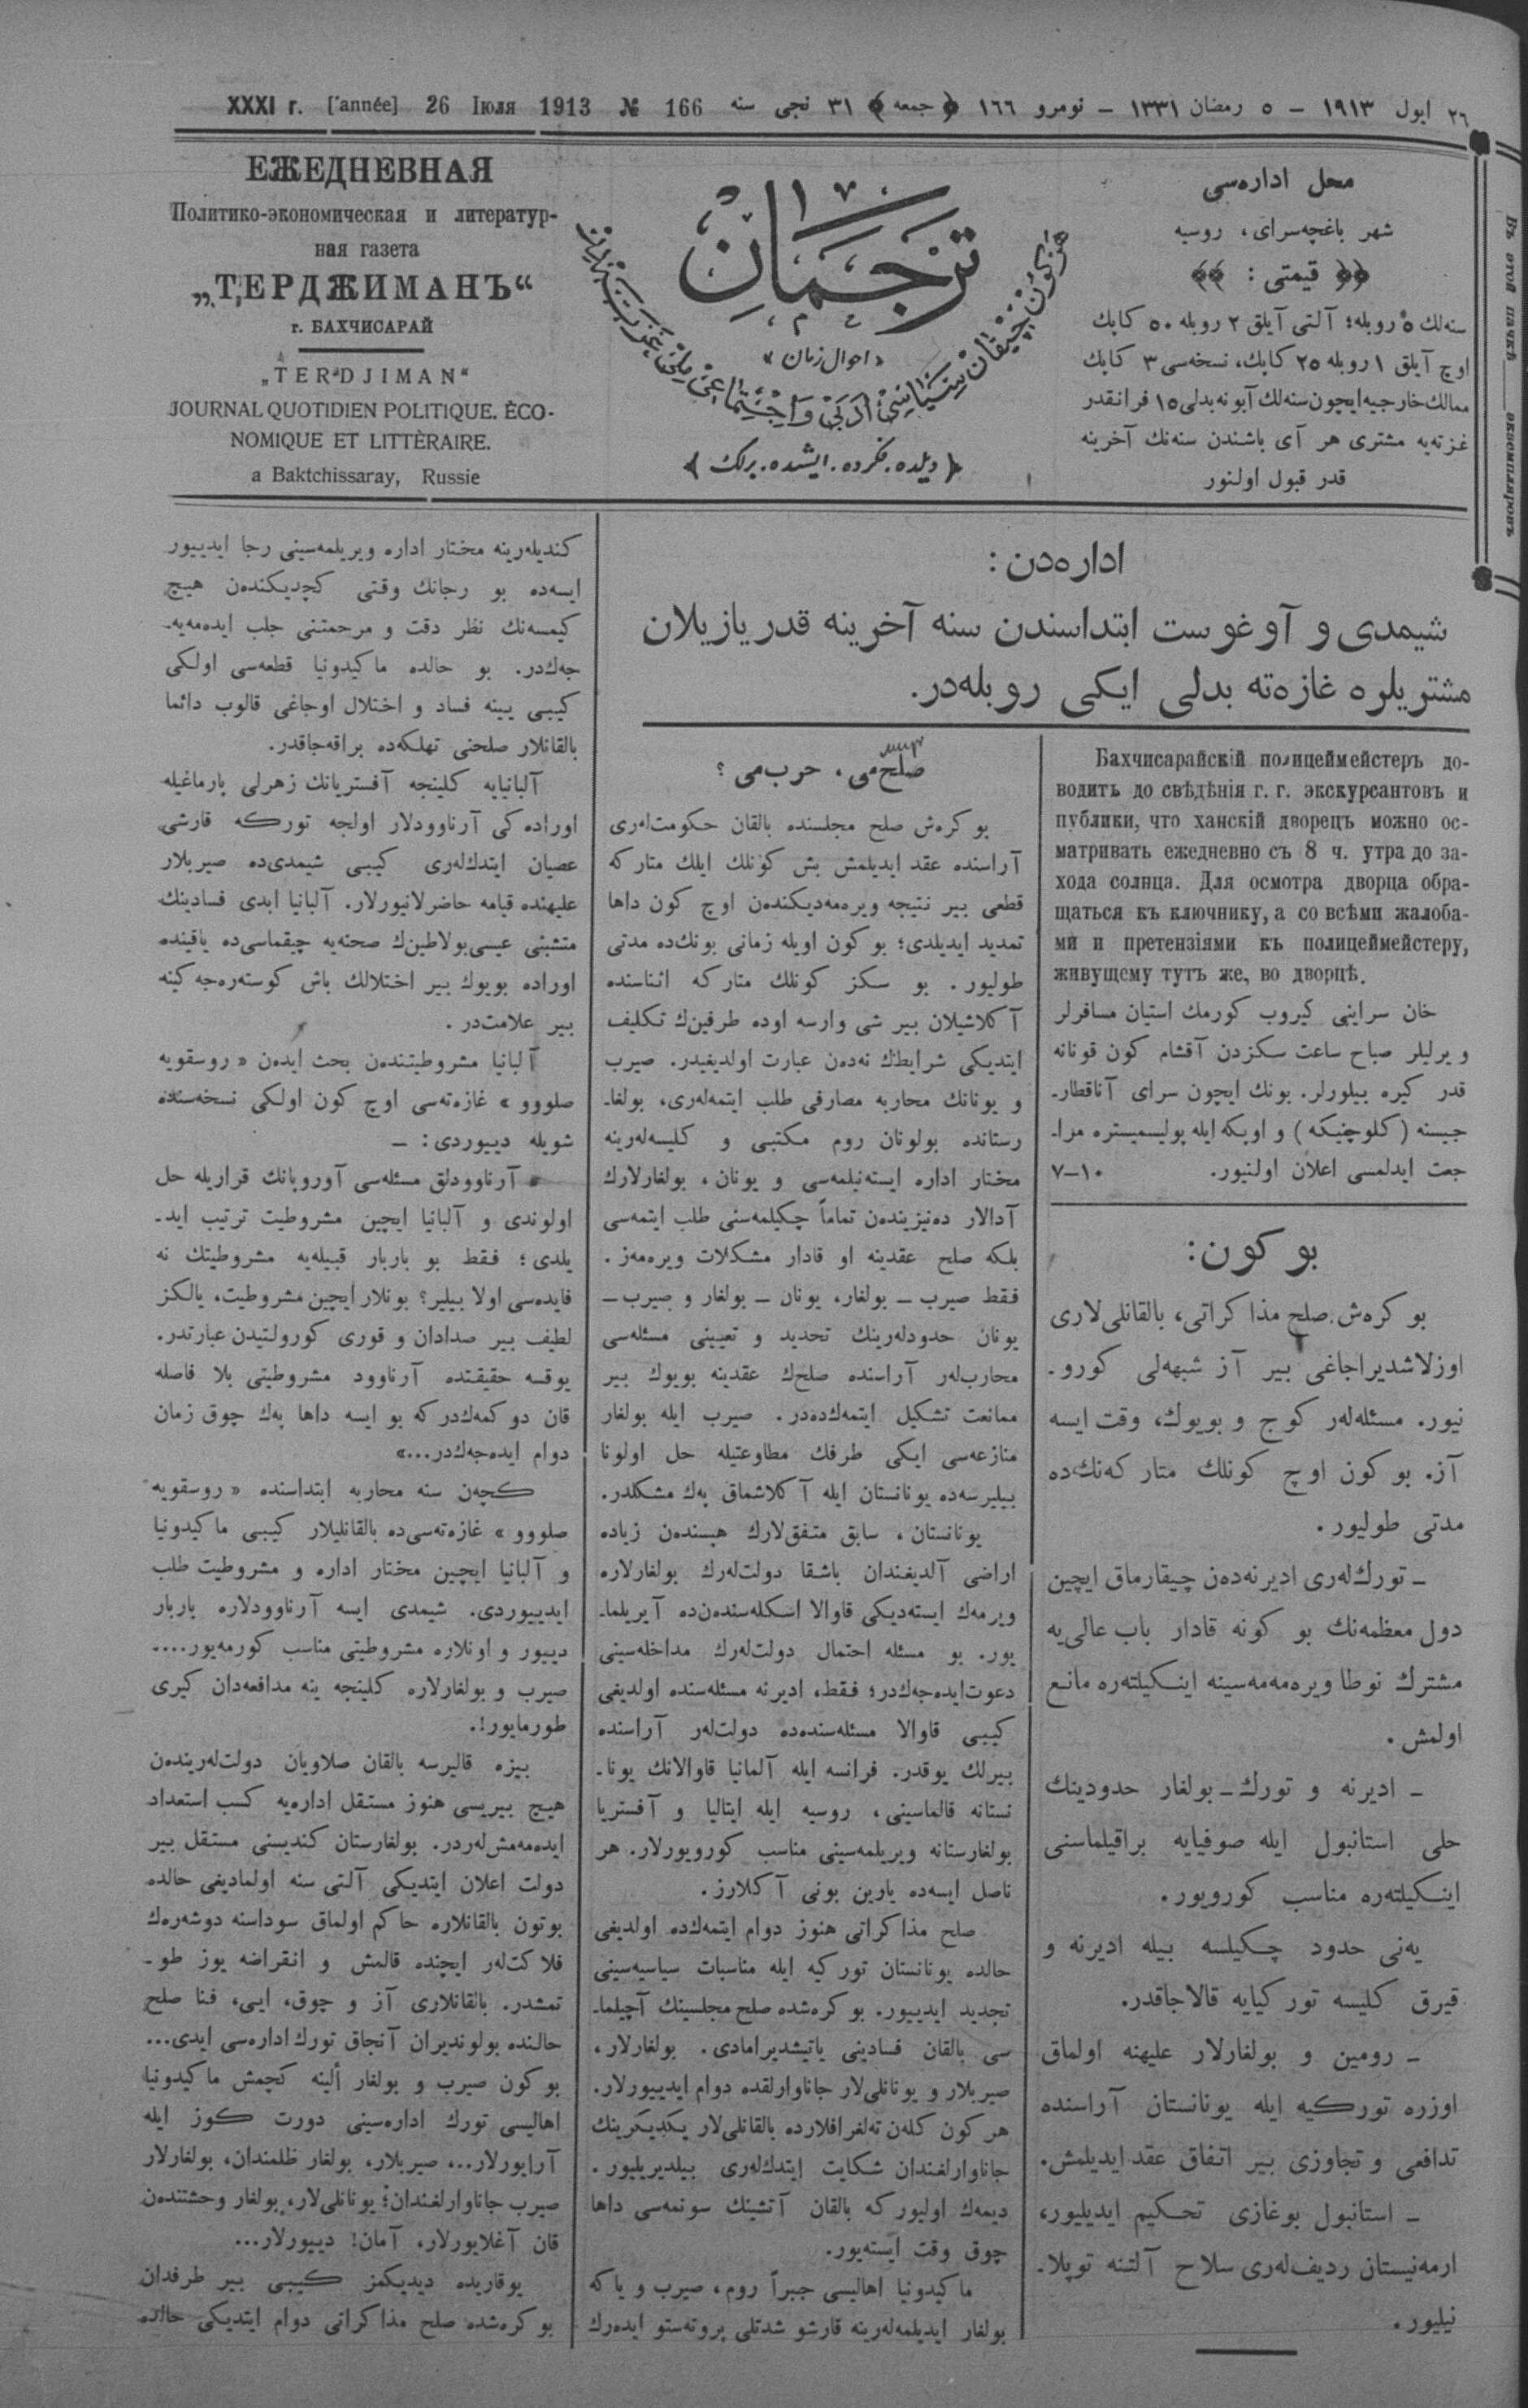 ٢٦ ایول ١٩١٣ — ٥ رمضان ١٣٣١ — نومرو ١٦٦ ﴿ جمعه ﴾ ٣١ نجی سنه XXXI г. [année] 26 Іюля 1913 № 166
محل اداره‌سی
شهر باغچه‌سرای، روسیه
﴿﴿ قیمتی : ﴾﴾
سنه‌لك ٥ روبله؛ آلتی آیلق ٢ روبله ٥٠ كاپك
اوچ آیلق ١ روبله ٢٥ كاپك، نسخه‌سی ٣ كاپك
ممالك خارجیه ایچون سنه‌لك آبونه بدلی ١٥ فرانقدر
غزته‌یه مشتری هر آی باشندن سنه‌نك آخرینه
قدر قبول اولنور
ترجمان
«احوال زمان»
هر كون چیقان سیاسی، ادبی و اجتماعی ملی غزته‌در
﴿ دیلده . فكرده . ایشده . برلك ﴾
ЕЖЕДНЕВНАЯ
Политико-экономическая и литератур-
ная газета
„ТЕРДЖИМАНЪ“
г. БАХЧИСАРАЙ
„TERDJIMAN“
JOURNAL QUOTIDIEN POLITIQUE. ÈCO-
NOMIQUE ET LITTÈRAIRE.
a Baktchissaray, Russie
Въ этой пачкѣ ____ экземпляровъ
اداره‌دن :
شیمدی و آوغوست ابتداسندن سنه آخرینه قدر یازیلان
مشتریلره غازه‌ته بدلی ایكی روبله‌در.
Бахчисарайскій полицеймейстеръ до-
водитъ до свѣдѣнія г. г. экскурсантовъ и
публики, что ханскій дворецъ можно ос-
матривать ежедневно съ 8 ч. утра до за-
хода солнца. Для осмотра дворца обра-
щаться къ ключнику, а со всѣми жалоба-
ми и претензіями къ полицеймейстеру,
живущему тутъ же, во дворцѣ.
خان سراینی كیروب كورمك استیان مسافرلر
و یرلیلر صباح ساعت سكزدن آقشام كون قونانه
قدر كیره بیلورلر. بونك ایچون سرای آناقطار-
جیسنه (كلوچنیكه) و اوپكه ایله پولیسمیستره مرا-
جعت ایدلمسی اعلان اولنیور. ١٠—٧
بو كون:
بوكره‌ش صلح مذاكراتی، بالقانلی‌لاری
اوزلاشدیراجاغی بیر آز شبهه‌لی كورو-
نیور. مسئله‌لر كوج و بویوك، وقت ایسه
آز. بو كون اوچ كونلك متاركه‌نك‌ده
مدتی طولیور.
— تورك‌له‌ری ادیرنه‌ده‌ن چیقارماق ایچین
دول معظمه‌نك بو كونه قادار باب عالی‌یه
مشترك نوطا ویره‌مه‌مه‌سینه اینكیلته‌ره مانع
اولمش.
— ادیرنه و تورك — بولغار حدودینك
حلی استانبول ایله صوفیایه براقیلماسنی
اینكیلته‌ره مناسب كورویور.
یه‌نی حدود چكیلسه بیله ادیرنه و
قیرق كلیسه توركیایه قالاجاقدر.
— رومین و بولغارلار علیهنه اولماق
اوزره توركیه ایله یونانستان آراسنده
تدافعی و تجاوزی بیر اتفاق عقد ایدیلمش.
— استانبول بوغازی تحكیم ایدیلیور،
ارمه‌نیستان ردیف‌له‌ری سلاح آلتنه توپلا-
نیلیور.
صلح‌می، حرب‌می؟
بوكره‌ش صلح مجلسنده بالقان حكومت‌له‌ری
آراسنده عقد ایدیلمش بش كونلك ایلك متاركه
قطعی بیر نتیجه ویره‌مه‌دیكنده‌ن اوچ كون داها
تمدید ایدیلدی؛ بو كون اویله زمانی بونك‌ده مدتی
طولیور. بو سكز كونلك متاركه اثناسنده
آكلاشیلان بیر شی وارسه اوده طرفین‌ك تكلیف
ایتدیكی شرایطك نه‌ده‌ن عبارت اولدیغیدر. صیرب
و یونانك محاربه مصارفی طلب ایتمه‌له‌ری، بولغا-
رستانده بولونان روم مكتبی و كلیسه‌له‌رینه
مختار اداره ایسته‌نیلمه‌سی و یونان، بولغارلارك
آدالار ده‌نیزینده‌ن تماماً چكیلمه‌سنی طلب ایتمه‌سی
بلكه صلح عقدینه او قادار مشكلات ویره‌مه‌ز.
فقط صیرب — بولغار، یونان — بولغار و صیرب —
یونان حدودله‌رینك تحدید و تعیینی مسئله‌سی
محارب‌لر آراسنده صلحك عقدینه بویوك بیر
ممانعت تشكیل ایتمه‌كده‌در. صیرب ایله بولغار
منازعه‌سی ایكی طرفك مطاوعتیله حل اولونا
بیلیرسه‌ده یونانستان ایله آكلاشماق په‌ك مشكلدر.
یونانستان، سابق متفق‌لارك هپسنده‌ن زیاده
اراضی آلدیغندان باشقا دولت‌له‌رك بولغارلاره
ویرمه‌ك ایسته‌دیكی قاوالا اسكله‌سنده‌ن‌ده آیریلما-
یور. بو مسئله احتمال دولت‌له‌رك مداخله‌سینی
دعوت‌ایده‌جه‌كدر؛ فقط، ادیرنه مسئله‌سنده اولدیغی
كیبی قاوالا مسئله‌سنده‌ده دولت‌لر آراسنده
بیرلك یوقدر. فرانسه ایله آلمانیا قاوالانك یونا-
نستانه قالماسینی، روسیه ایله ایتالیا و آفستریا
بولغارستانه ویریلمه‌سینی مناسب كورویورلار. هر
ناصل ایسه‌ده یارین بونی آكلارز.
صلح مذاكراتی هنوز دوام ایتمه‌كده اولدیغی
حالده یونانستان توركیه ایله مناسبات سیاسیه‌سینی
تجدید ایدییور. بوكره‌شده صلح مجلسینك آچیلما-
سی بالقان فسادینی یاتیشدیرامادی. بولغارلار،
صیربلار و یونانلی‌لار جاناوارلقده دوام ایدییورلار.
هر كون كله‌ن ته‌لغرافلارده بالقانلی‌لار یكدیكرینك
جاناوارلغندان شكایت ایتدك‌له‌ری بیلدیریلیور.
دیمه‌ك اولیوركه بالقان آتشینك سونمه‌سی داها
چوق وقت ایسته‌یور.
ماكیدونیا اهالیسی جبراً روم، صیرب و یاكه
بولغار ایدیلمه‌له‌رینه قارشو شدتلی پروته‌ستو ایده‌رك
كندیله‌رینه مختار اداره ویریلمه‌سینی رجا ایدییور
ایسه‌ده بو رجانك وقتی كچدیكنده‌ن هیچ
كیمسه‌نك نظر دقت و مرحمتنی جلب ایده‌مه‌یه-
جه‌كدر. بو حالده ماكیدونیا قطعه‌سی اولكی
كیبی یینه فساد و اختلال اوجاغی قالوب دائما
بالقانلار صلحنی تهلكه‌ده براقه‌جاقدر.
آلبانیایه كلینجه آفستریانك زهرلی پارماغیله
اوراده‌كی آرناوودلار اولجه توركه قارشی
عصیان ایتدك‌له‌ری كیبی شیمدی‌ده صیربلار
علیهنده قیامه حاضرلانیورلار. آلبانیا ابدی فسادینك
متشبثی عیسی‌بولاطین‌ك صحنه‌یه چیقماسی‌ده یاقینده
اوراده بویوك بیر اختلالك باش كوستره‌جه‌كینه
بیر علامت‌در.
آلبانیا مشروطیتنده‌ن بحث ایده‌ن «روسقویه
صلووو» غازه‌ته‌سی اوچ كون اولكی نسخه‌سنده
شویله دییوردی: —
«آرناوودلق مسئله‌سی آوروپانك قراریله حل
اولوندی و آلبانیا ایچین مشروطیت ترتیب اید-
یلدی؛ فقط بو باربار قبیله‌یه مشروطیتك نه
فایده‌سی اولا بیلیر؟ بونلار ایچین مشروطیت، یالكز
لطیف بیر صدادان و قوری كورولتیدن عبارتدر.
یوقسه حقیقتده آرناوود مشروطیتی بلا فاصله
قان دوكمه‌كدركه بو ایسه داها په‌ك چوق زمان
دوام ایده‌جه‌كدر...»
كچه‌ن سنه محاربه ابتداسنده «روسقویه
صلووو» غازه‌ته‌سی‌ده بالقانلیلار كیبی ماكیدونیا
و آلبانیا ایچین مختار اداره و مشروطیت طلب
ایدییوردی. شیمدی ایسه آرناوودلاره باربار
دییور و اونلاره مشروطیتی مناسب كورمه‌یور....
صیرب و بولغارلاره كلینجه ینه مدافعه‌دان كیری
طورمایور!.
بیزه قالیرسه بالقان صلاویان دولت‌له‌رینده‌ن
هیچ بیریسی هنوز مستقل اداره‌یه كسب استعداد
ایده‌مه‌مش‌له‌ردر. بولغارستان كندیسنی مستقل بیر
دولت اعلان ایتدیكی آلتی سنه اولمادیغی حالده
بوتون بالقانلاره حاكم اولماق سوداسنه دوشه‌ره‌ك
فلاكت‌لر ایچنده قالمش و انقراضه یوز طو-
تمشدر. بالقانلاری آز و چوق، ایی، فنا صلح
حالنده بولوندیران آنجاق تورك اداره‌سی ایدی...
بو كون صیرب و بولغار ألینه كچمش ماكیدونیا
اهالیسی تورك اداره‌سینی دورت كوز ایله
آرایورلار...، صیربلار، بولغار ظلمندان، بولغارلار
صیرب جاناوارلغندان؛ یونانلی‌لار، بولغار وحشتنده‌ن
قان آغلایورلار، آمان! دییورلار...
یوقاریده دیدیكمز كیبی بیر طرفدان
بوكره‌شده صلح مذاكراتی دوام ایتدیكی حالده